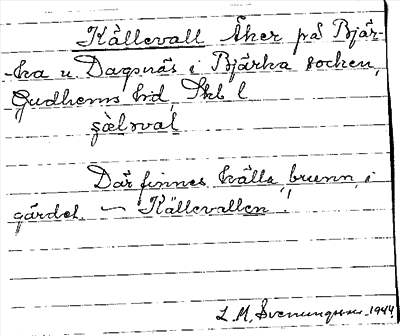 Källevall Åker på Bjär-
ka u. Dagsnäs i Bjärka socken,
Gudhems hd, Skb l
çälɘval
Där finnes källa, brunn, i
gärdet. — "Källevallen".
L. M. Svenungsson 1944